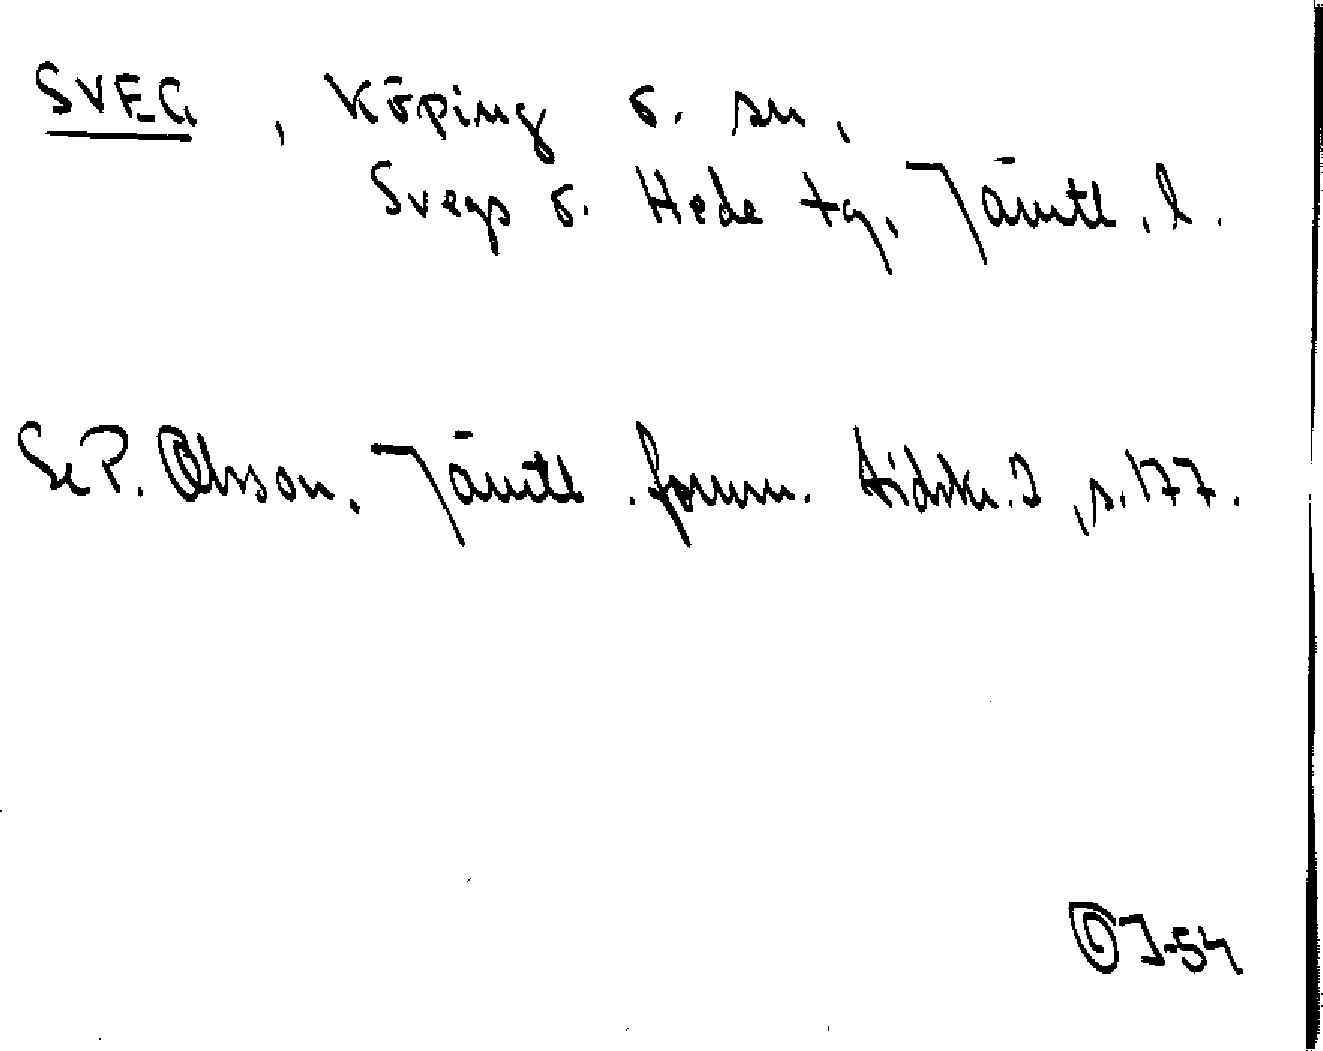 SVEG, Köping o. sn,
Svegs o. Hede tg, Jämtl. l.
Se P. Olsson, Jämtl. fornm. tidskr. 2, s. 177.
OJ-54